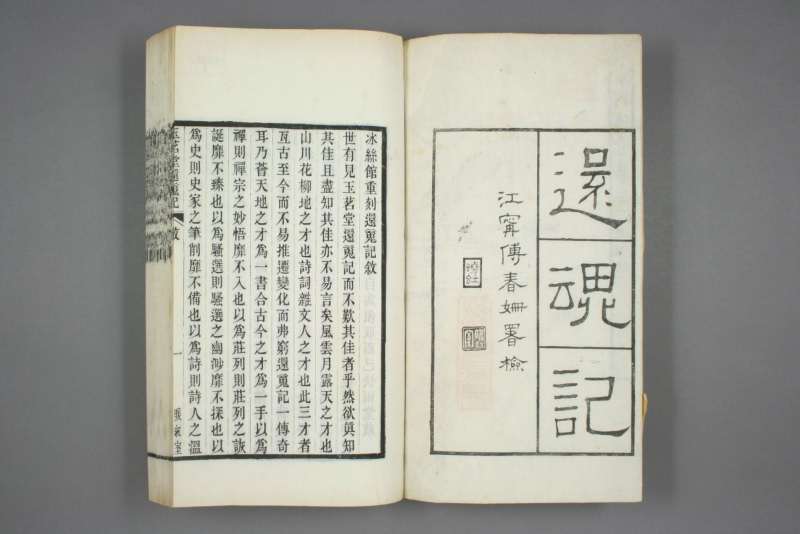 還魂記
江寧傅春姍署檢
冰絲館重刻還䰟記敘
世有見玉茗堂還䰟記而不歎其佳者乎然欲眞知
其佳且盡知其佳亦不易言矣風雲月露天之才也
山川花柳地之才也詩詞雜文人之才也此三才者
亙古至今而不易推遷變化而弗窮還䰟記一傳奇
耳乃薈天地之才爲一書合古今之才爲一手以爲
禪則禪宗之妙悟靡不入也以爲莊列則莊列之詼
誕靡不臻也以爲騷選則騷選之幽渺靡不探也以
爲史則史家之筆削靡不備也以爲詩則詩人之溫
玉茗堂還䰟記
敘
一